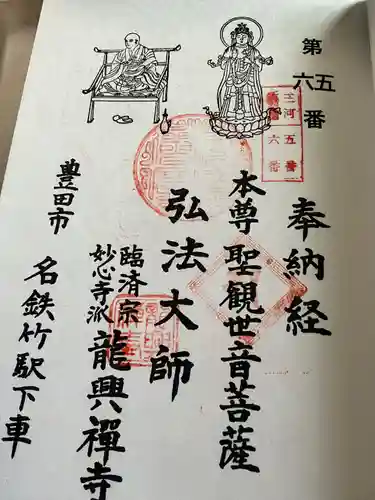 第
六五
番
三河五番
六番
奉納経
本尊聖観世音菩薩
弘法大師
臨済宗
妙心寺派
龍興禅寺
豊田市
名鉄竹駅下車